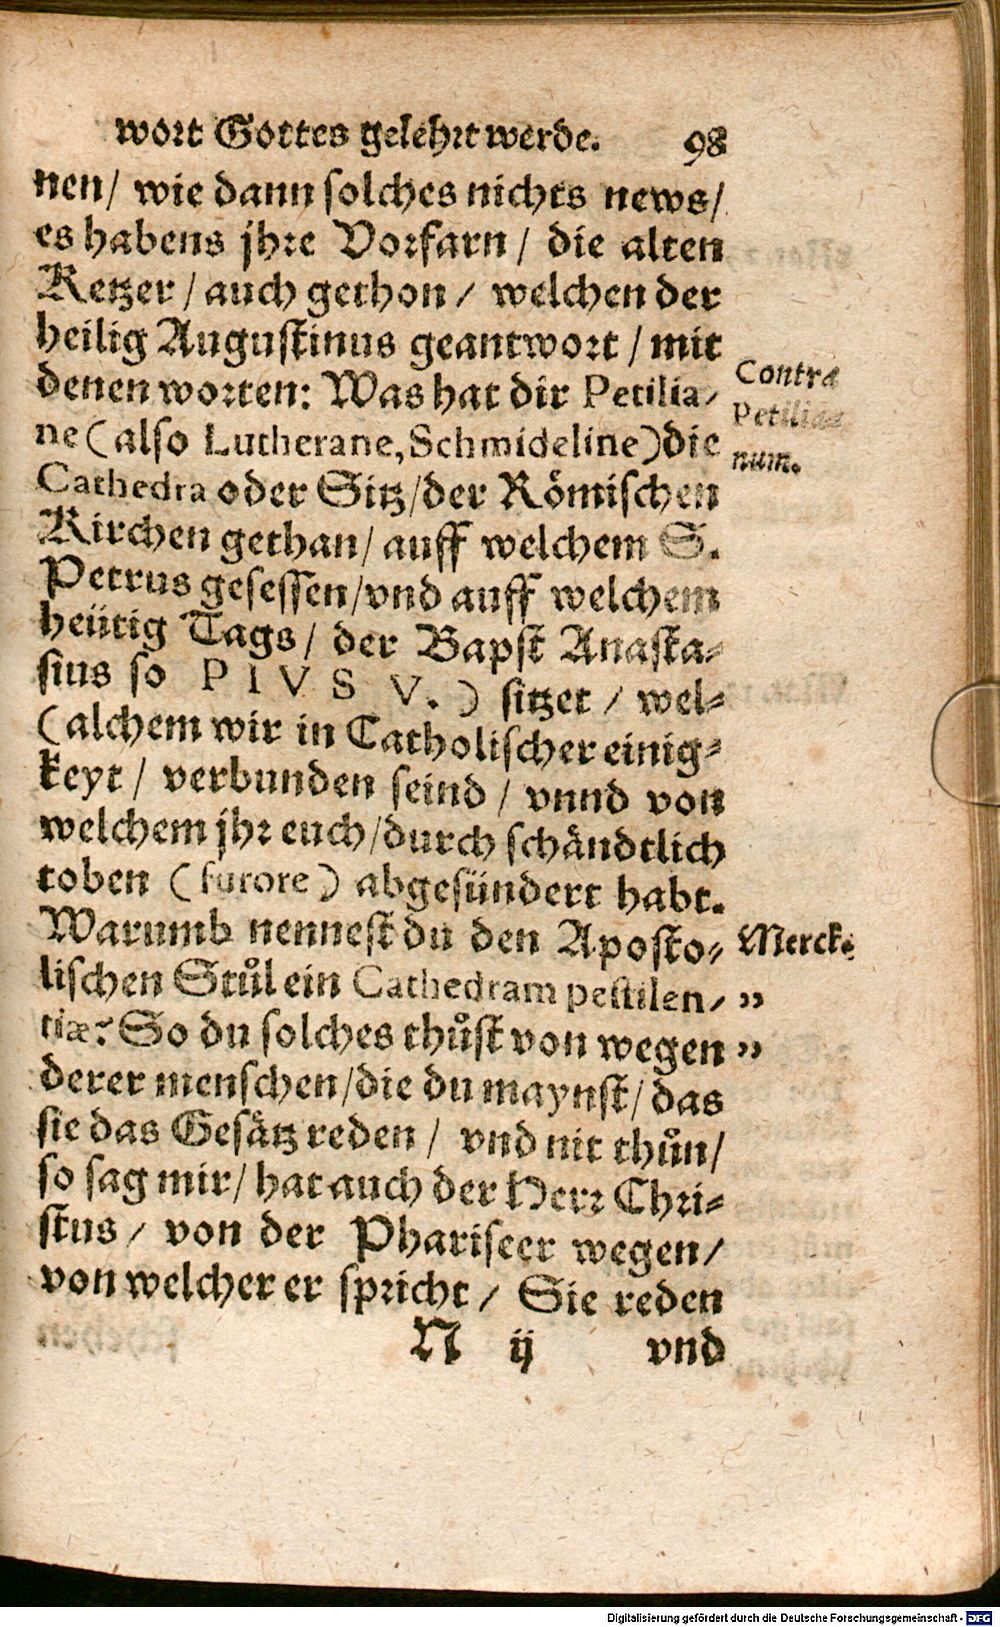 wort Gottes gelehrt werde. 98
nen/ wie dann solches nichts news/
es habens jhre Vorfarn/ die alten
Ketzer/ auch gethon/ welchen der
heilig Augustinus geantwort/ mit
denen worten: Was hat dir Petilia-
Contra
Petilia-
num.
ne (also Lutherane, Schmideline) die
Cathedra oder Sitz/ der Römischen
Kirchen gethan/ auff welchem S.
Petrus gesessen/ vnd auff welchem
heütig Tags/ der Bapst Anasta-
sius so PIVS V.) sitzet/ wel-
(alchem wir in Catholischer einig-
keyt/ verbunden seind/ vnnd von
welchem jhr euch/ durch schändtlich
toben (furore) abgesündert habt.
Warumb nennest du den Aposto-
Merck.
lischen Stůl ein Cathedram pestilen- ”
tiæ? So du solches thůst von wegen ”
derer menschen/ die du maynst/ das
sie das Gesätz reden/ vnd nit thůn/
so sag mir/ hat auch der Herr Chri-
stus/ von der Phariseer wegen/
von welcher er spricht/ Sie reden
N ij vnd
Digitalisierung gefördert durch die Deutsche Forschungsgemeinschaft - DFG